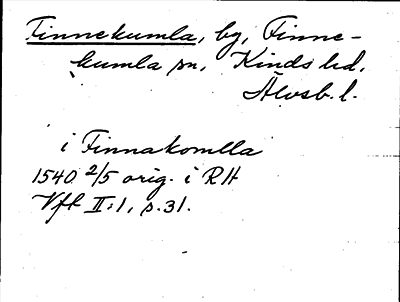 Finnekumla, by, Finne-
kumla sn, Kinds hd,
Älvsb. l.
i Finnakomlla
1540 2/5 orig. i RH
Vft II:1, s. 31.